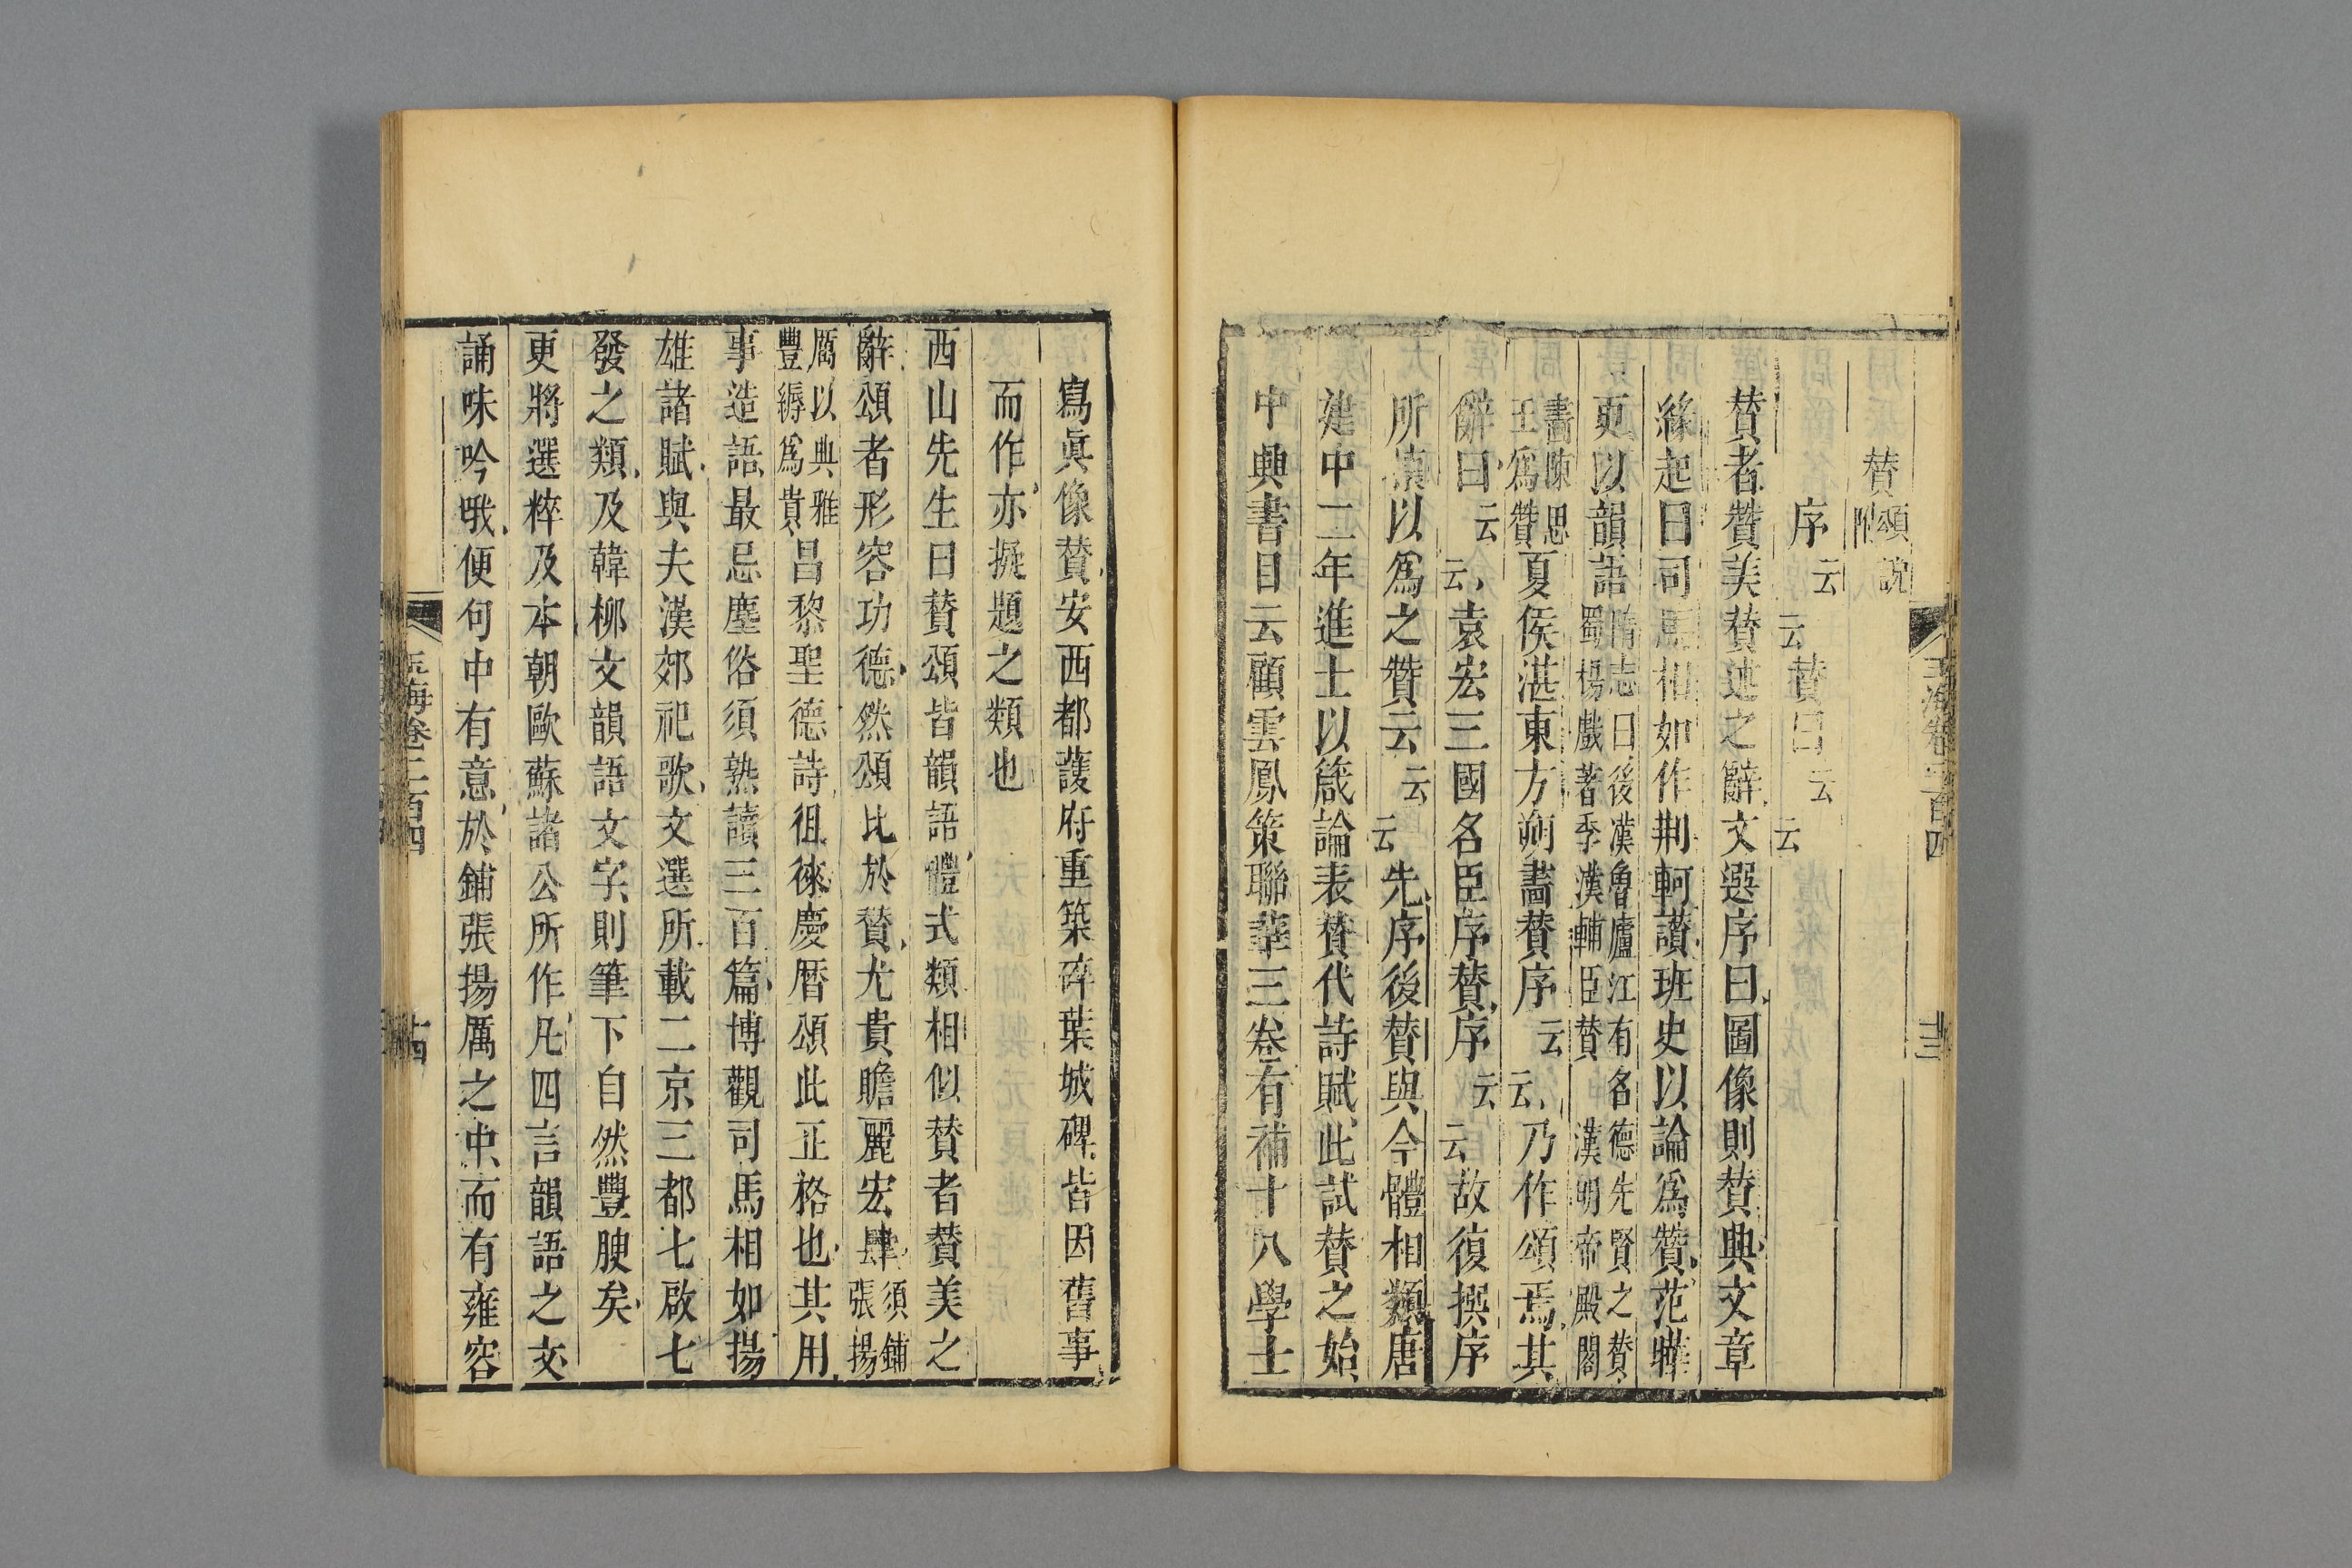 玉海卷二百四
贊頌說附
序云云贊曰云云
贊者贊美贊述之辭文選序曰圖像則贊興文章
緣起曰司馬相如作荆軻讚班史以論爲贊范曄
更以韻語隋志曰後漢魯廬江有名德先賢之贊蜀楊戲著季漢輔臣贊漢明帝殿閣
畫陳思王爲贊夏侯湛東方朔畫贊序云云乃作頌焉其
辭曰云云袁宏三國名臣序贊序云云故復撰序
所懷以爲之贊云云云先序後贊與今體相類唐
建中二年進士以箴論表贊代詩賦此試贊之始
中興書目云顧雲鳳策聯華三卷有補十八學士
寫眞像贊安西都護府重築碎葉城碑皆因舊事
而作亦擬題之類也
西山先生曰贊頌皆韻語體式類相似贊者贊美之
辭頌者形容功德然頌比於贊尤貴贍麗宏肆須鋪張揚
厲以典雅豐縟爲貴昌黎聖德詩徂徠慶曆頌此正格也其用
事造語最忌塵俗須熟讀三百篇博觀司馬相如揚
雄諸賦與夫漢郊祀歌文選所載二京三都七啟七
發之類及韓柳文韻語文字則筆下自然豐腴矣
更將選粹及本朝歐蘇諸公所作凡四言韻語之文
誦味吟哦便句中有意於鋪張揚厲之中而有雍容
玉海卷二百四